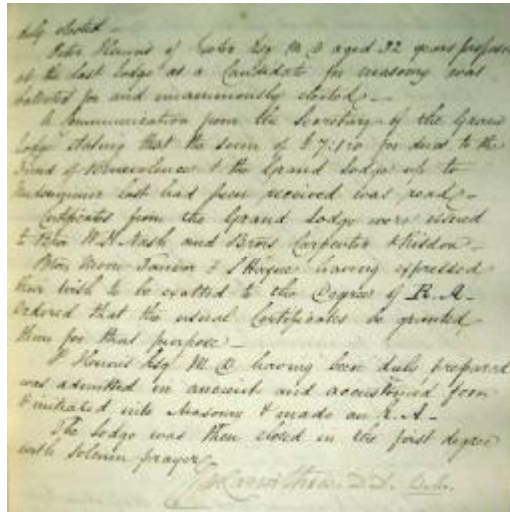 duly elected
Peter Hennis of Exeter Esq M D aged 32 years proposed
at the last lodge as a Candidate for masonry was
balloted for and unanimously elected -
A communication from the Secretary of the Grand
Lodge stating that the sum of £7:1:0 for dues to the
Fund of Benevolence & the Grand Lodge up to
Midsummer last had been received was read -
Certificates from the Grand Lodge were issued
to W. H. Nash and Bros Carpenter & Risdon -
having expressed
their wish to be exalted to the Degree of R. A. -
Ordered that the usual Certificates be granted
them for that purpose -
P Hennis Esq M D having been duly prepared
was admitted in ancient and accustomed form
& initiated into Masonry & made an E. A -
The lodge was then closed in the first degree
with solemn prayer
Carwithen D.D.